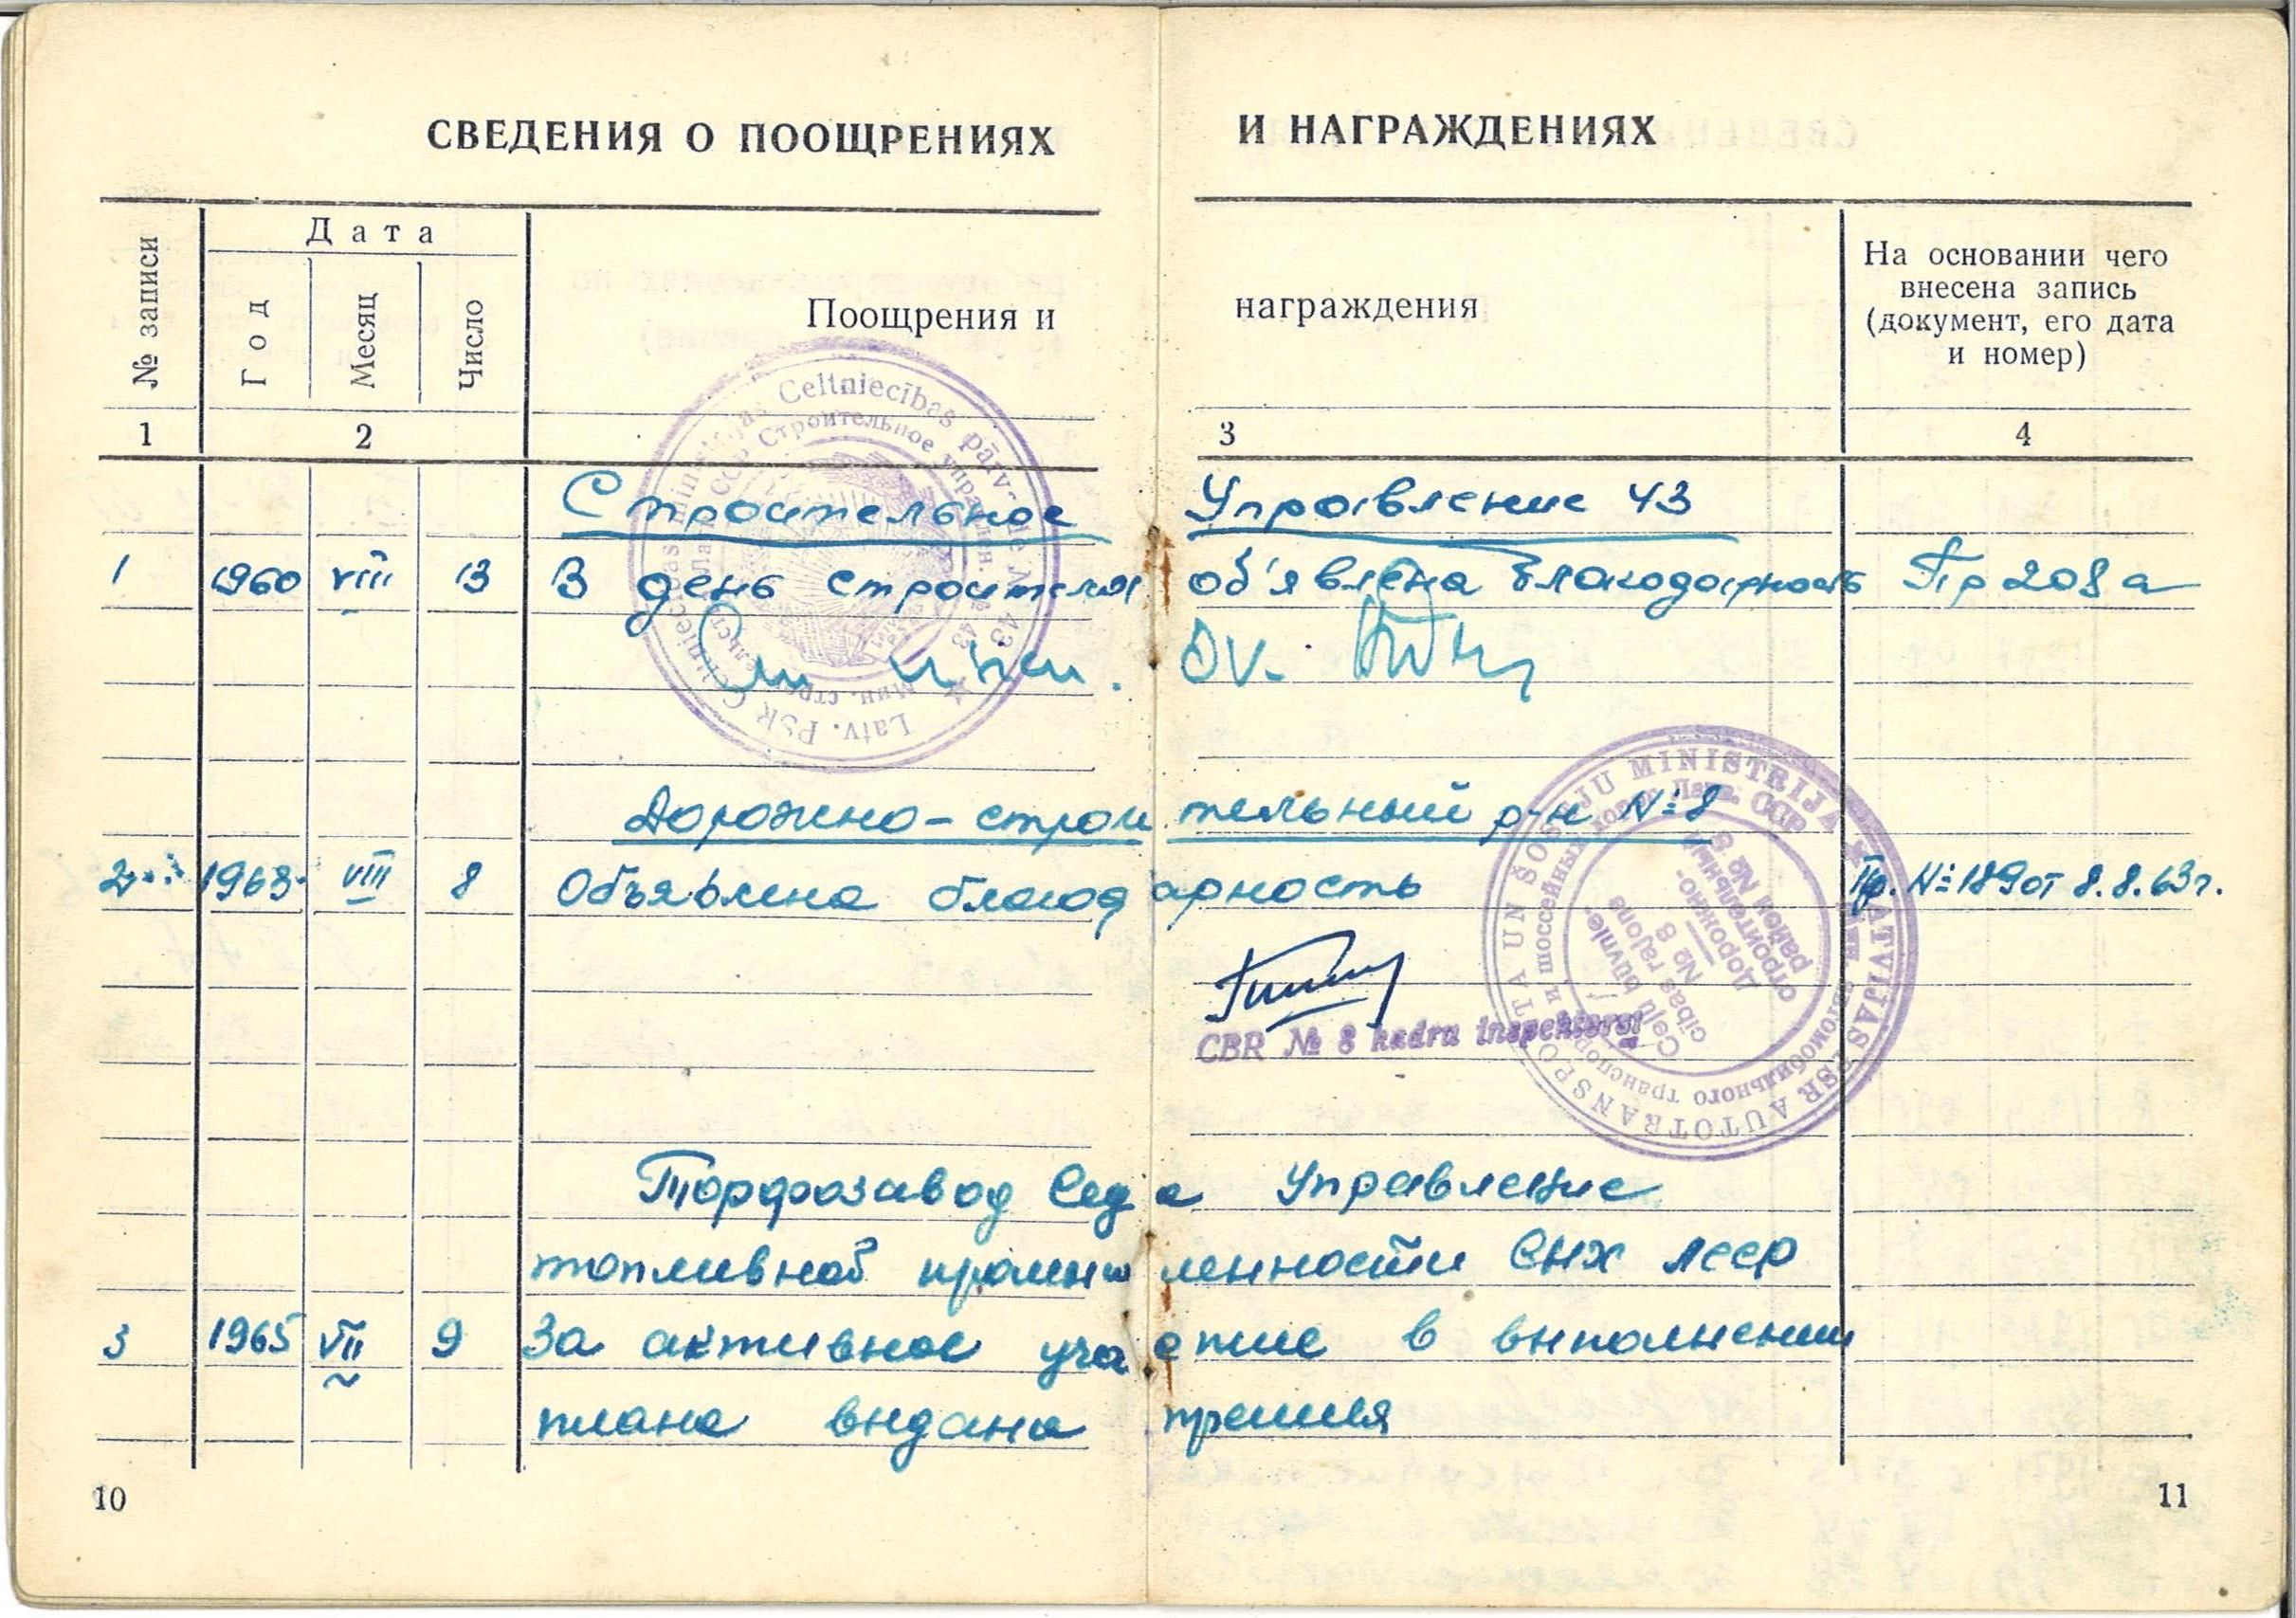 СВЕДЕНИЯ О ПООЩРЕНИЯХ И НАГРАЖДЕНИЯХ
№ записи
Дата
Год
Месяц
Число
Поощрения и награждения
На основании чего
внесена запись
(документ, его дата
и номер)
1 2 3 4
Строительное Управление 43
1 1960 VIII 13 В день строителя об'явлена благодарность Пр 208а
Latv. PSR Celtniecības ministrijas Celtniecības pārv-de № 43
Строительное управлен. № 43
Дорожно-строительный р-н №8
2 1963 VIII 8 Объявлена благодарность Пр. № 189 от 8.8.63г.
CBR № 8 kadru inspektors
LATVIJAS PSR AUTOTRANSPORTA UN ŠOSEJU MINISTRIJA
автомобильного транспорта и шоссейных дорог Латв. ССР
Ceļu būvnie-
cības rajons
№ 8
Дорожно-
строительный
район № 8
Торфозавод Седа Управление
топливной промышленности СНХ ЛССР
3 1965 VII 9 За активное участие в выполнении
плана выдана премия
10 11